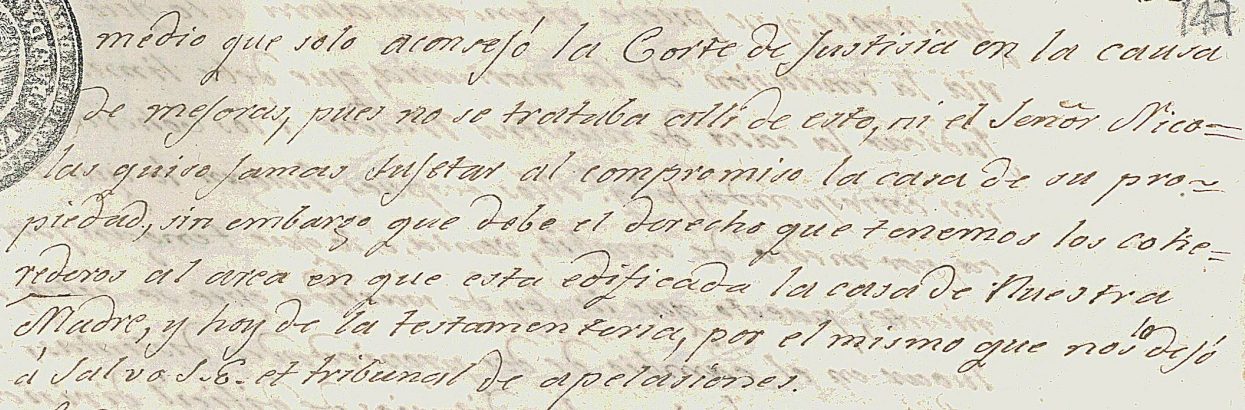 147
medio que solo aconsejó la Corte de Justisia en la causa
de mejoras, pues no se trataba alli de esto, ni el Señor Nico=
las quiso jamas sujetar al compromiso la casa de su pro=
piedad, sin embargo que debe el derecho que tenemos los cohe=
rederos al area en que esta edificada la casa de Nuestra
Madre, y hoy de la testamenteria, por el mismo que nos lo dejó
á salvo S.E. el tribunal de apelasiones.